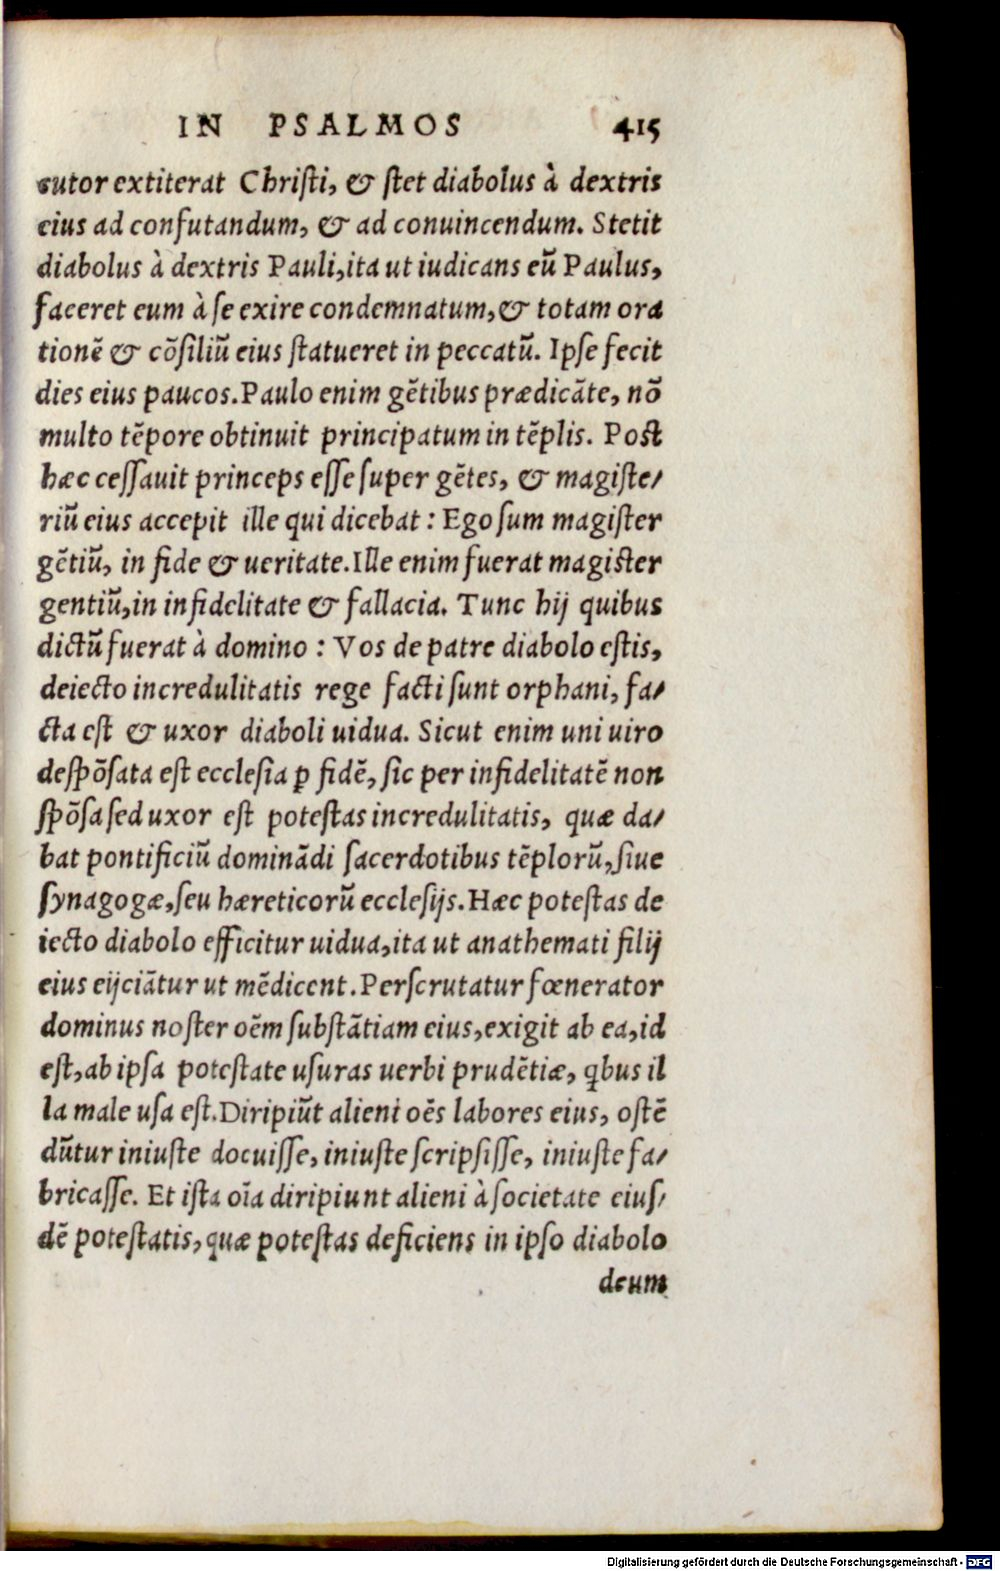 IN PSALMOS 415
cutor extiterat Christi, & ſtet diabolus à dextris
eius ad confutandum, & ad conuincendum. Stetit
diabolus à dextris Pauli, ita ut iudicans eũ Paulus,
faceret eum à ſe exire condemnatum, & totam ora
tionẽ & cõſiliũ eius ſtatueret in peccatũ. Ipſe fecit
dies eius paucos. Paulo enim gẽtibus prædicãte, nõ
multo tẽpore obtinuit principatum in tẽplis. Poſt
hæc ceſſauit princeps eſſe ſuper gẽtes, & magiſte⸗
riũ eius accepit ille qui dicebat : Ego ſum magiſter
gẽtiũ, in fide & ueritate. Ille enim fuerat magiſter
gentiũ, in infidelitate & fallacia. Tunc hij quibus
dictũ fuerat à domino : Vos de patre diabolo eſtis,
deiecto incredulitatis rege facti ſunt orphani, fa⸗
cta eſt & uxor diaboli uidua. Sicut enim uni uiro
deſpõſata eſt eccleſia ꝑ fidẽ, ſic per infidelitatẽ non
ſpõſa ſed uxor eſt poteſtas incredulitatis, quæ da⸗
bat pontificiũ dominãdi ſacerdotibus tẽplorũ, ſiue
ſynagogæ, ſeu hæreticorũ eccleſijs. Hæc poteſtas de
iecto diabolo efficitur uidua, ita ut anathemati filij
eius eijciãtur ut mẽdicent. Perſcrutatur fœnerator
dominus noſter oẽm ſubſtãtiam eius, exigit ab ea, id
eſt, ab ipſa poteſtate uſuras uerbi prudẽtiæ, q̃bus il
la male uſa eſt. Diripiũt alieni oẽs labores eius, oſtẽ
dũtur iniuſte docuiſſe, iniuſte ſcripſiſſe, iniuſte fa⸗
bricaſſe. Et iſta oĩa diripiunt alieni à ſocietate eiuſ⸗
dẽ poteſtatis, quæ poteſtas deficiens in ipſo diabolo
deum
Digitalisierung gefördert durch die Deutsche Forschungsgemeinschaft - DFG